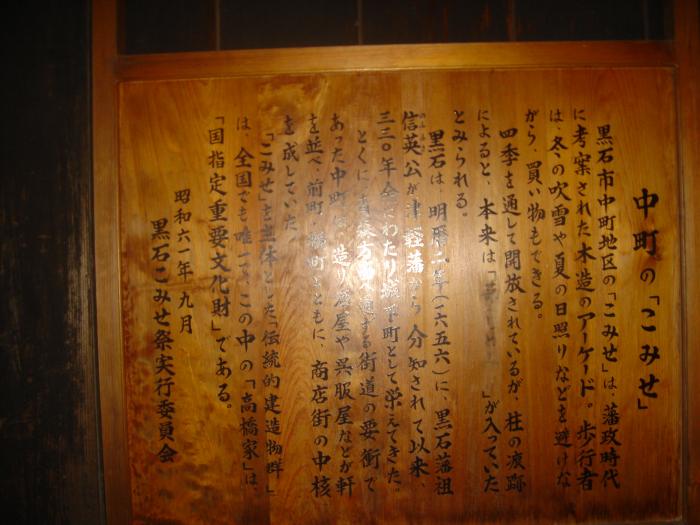 中町の「こみせ」
黒石市中町地区の「こみせ」は、藩政時代
に考案された木造のアーケード。歩行者
は、冬の吹雪や夏の日照りなどを避けな
がら、買い物もできる。
四季を通して開放されているが、柱の痕跡
によると、本来は「 」が入っていた
とみられる。
黒石は、明暦二年(一六五六)に、黒石藩祖
信英公が津軽藩から分知されて以来、
三三〇年余にわたり城下町として栄えてきた。
とくに、青森方面へ通ずる街道の要衝で
あった中町は、造り酒屋や呉服屋などが軒
を並べ、前町、横町とともに、商店街の中核
を成していた。
「こみせ」を主体とした「伝統的建造物群」
は、全国でも唯一つ、この中の「高橋家」は、
「国指定重要文化財」である。
昭和六一年九月
黒石こみせ祭実行委員会